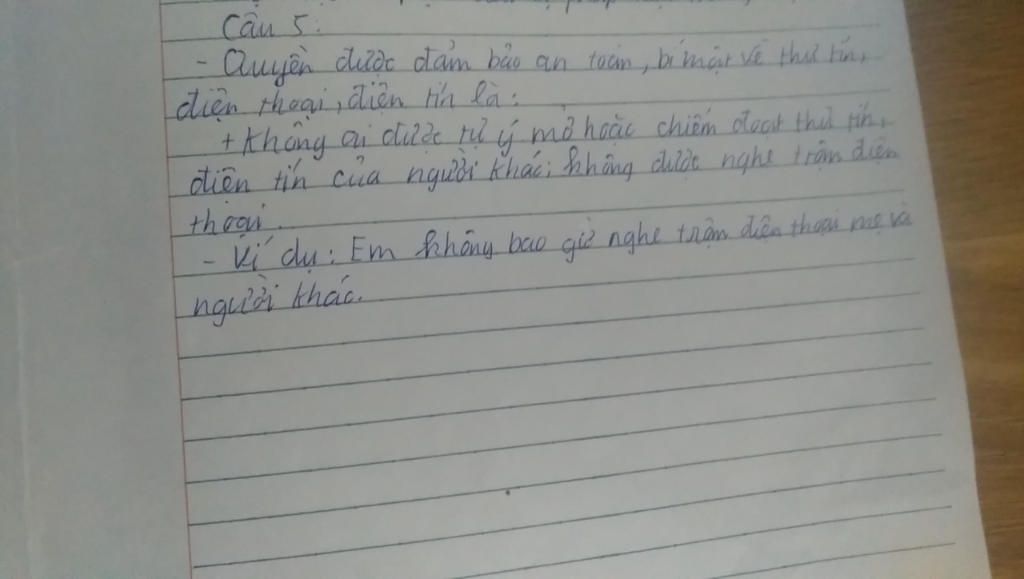 Câu 5:
- Quyền được đảm bảo an toàn, bí mật về thư tín,
điện thoại, điện tín là:
+ Không ai được tự ý mở hoặc chiếm đoạt thư tín,
điện tín của người khác; không được nghe trộm điện
thoại.
- Ví dụ: Em không bao giờ nghe trộm điện thoại mẹ và
người khác.